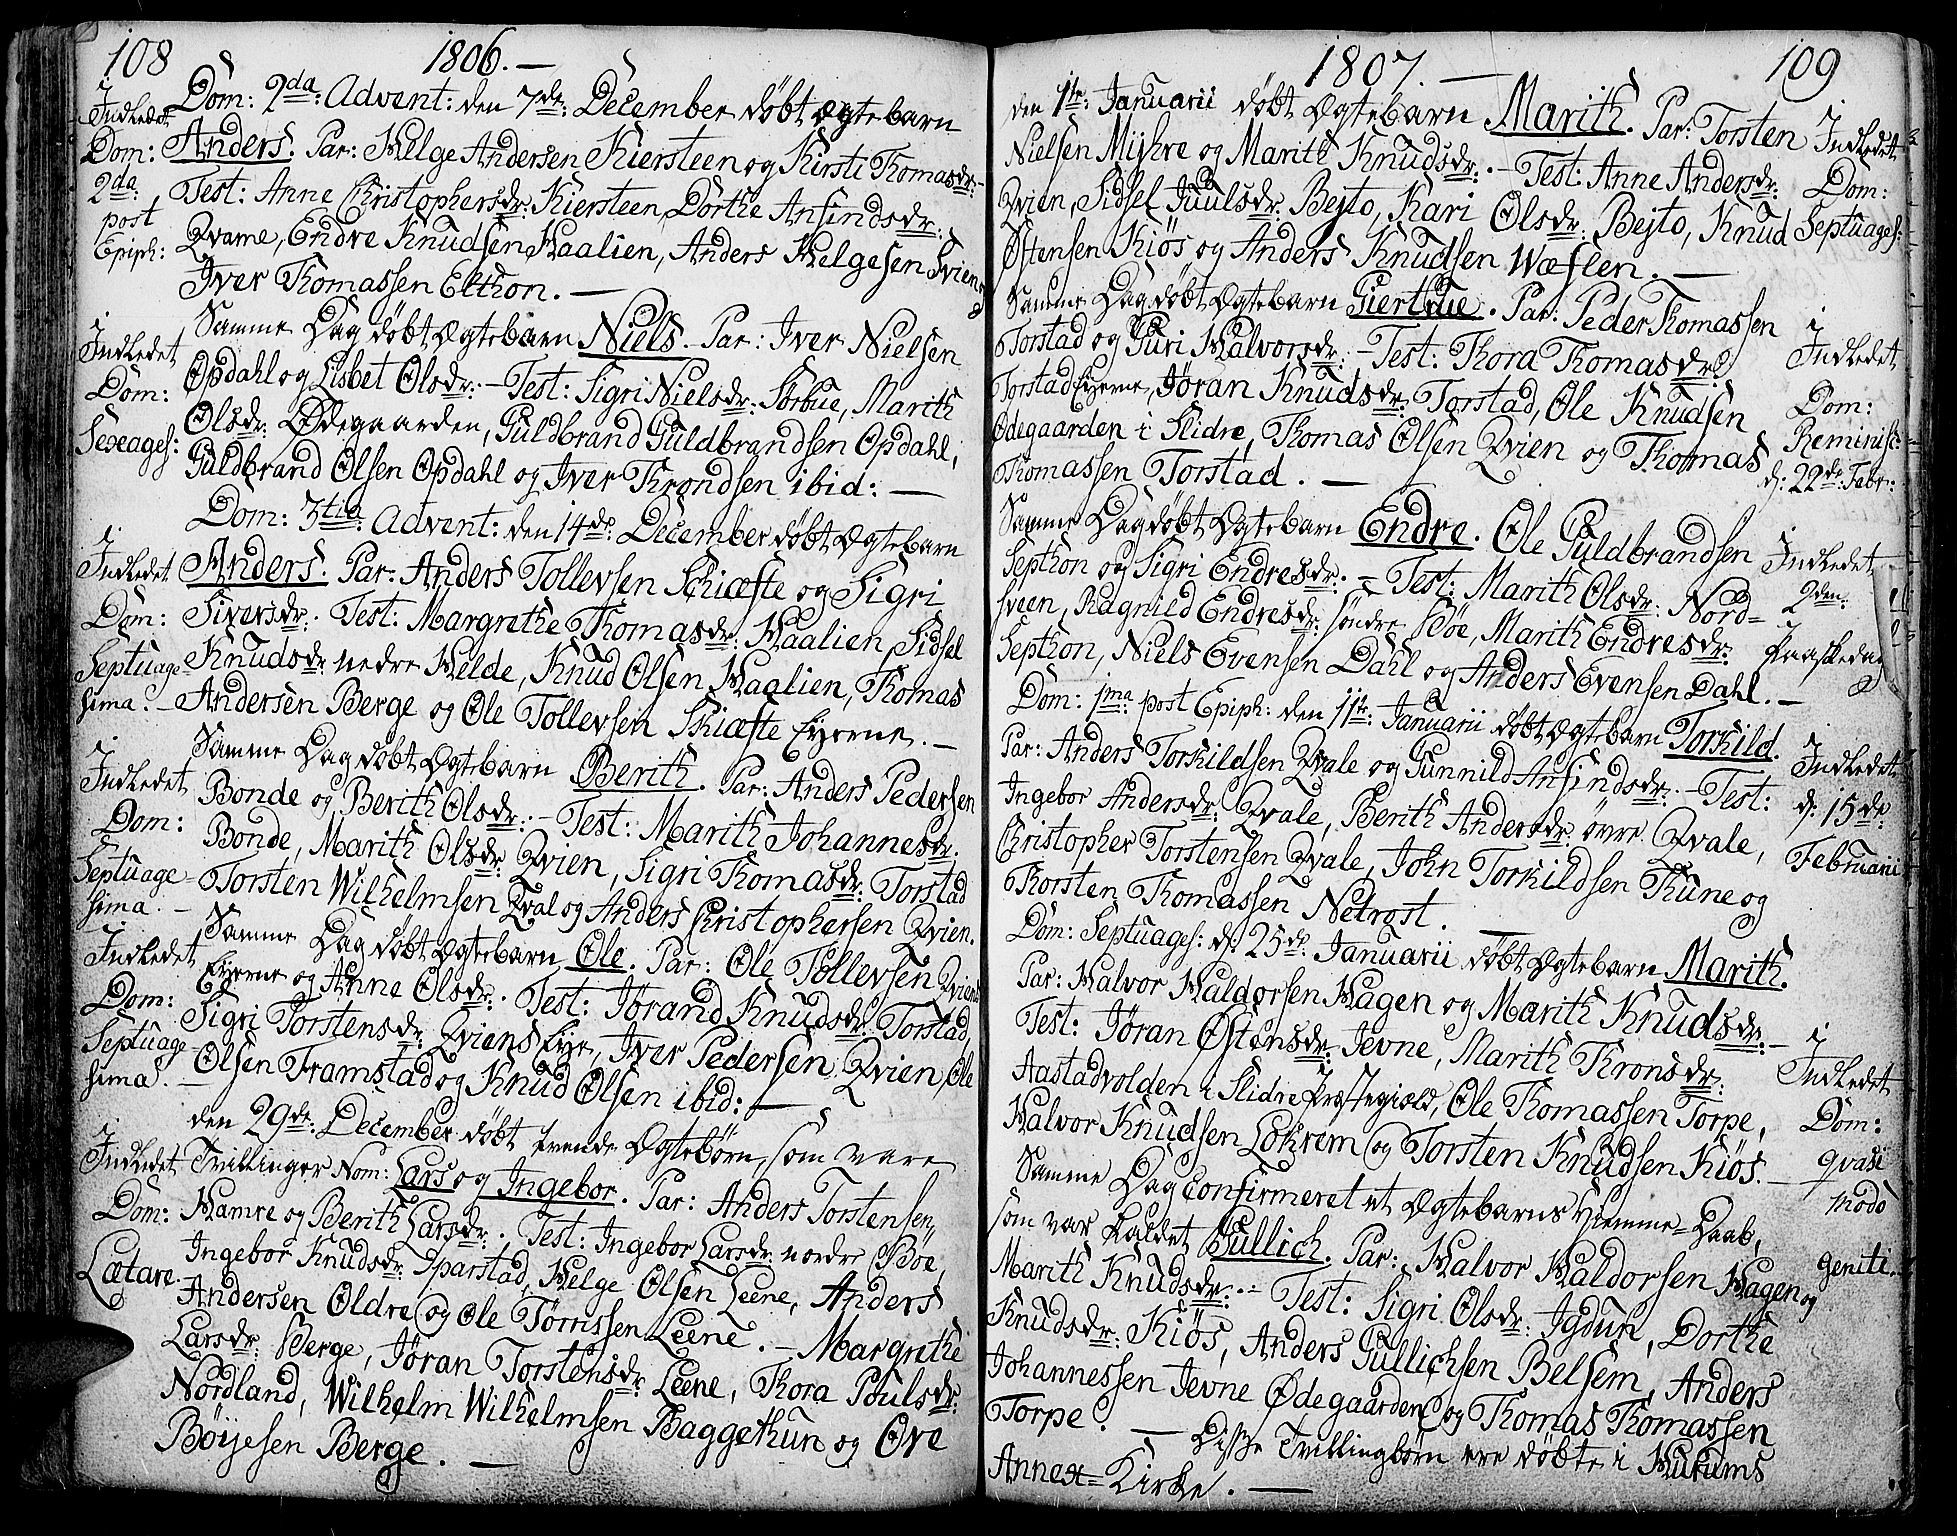 108 1806. —
Indledet
Dom:
2da:
post
Epiph:
Dom: 2da: Advent: den 7de: December døbt ægtebarn
Anders. Par: Helge Andersen Kiersteen og Kirsti Thomasdr: –
Test: Anne Christophersdr: Kiersteen, Dorthe Ansindsdr:
Qvame, Endre Knudsen Haalien, Anders Helgesen Sviens
Iver Thomassen Elthon. —
Indledet
Dom:
Sexages:
Samme Dag døbt Ægtebarn Niels. Par: Iver Nielsen
Opdahl og Lisbet Olsdr: – Test: Sigri Nielsdr: Sörbue, Marith
Olsdr: Ødegaarden, Guldbrand Guldbrandsen Opdahl,
Guldbrand Olsen Opdahl og Iver Throndsen ibid: —
Indledet
Dom:
Septuage-
sima. –
Dom: 3tia: Advent: den 14de December døbt Ægtebarn
Anders. Par: Anders Tollevsen Schiæfte og Sigri
Siversdr: Test: Margrethe Thomasdr: Haalien, Sidsel
Knudsdr: nedre Helde, Knud Olsen Haalien, Thomas
Andersen Berge og Ole Tollevsen Skiæfte Eyerne. –
Indledet
Dom:
Septuage-
sima. –
Samme Dag døbt Ægtebarn Berith. Par: Anders Pedersen
Bonde og Berith Olsdr: – Test: Marith Johannesdr:
Bonde, Marith Olsdr: Qvien, Sigri Thomasdr: Torstad
Torsten Wilhelmsen Qval og Anders Christophersen Qvien.
Indledet
Dom:
Septuage-
sima. –
Samme Dag døbt Ægtebarn Ole. Par: Ole Tollevsen Qviens
Eyerne og Anne Olsdr: Test: Jørand Knudsdr: Torstad,
Sigri Torstensdr: Qviens Eye, Iver Pedersen Qvien, Ole
Olsen Framstad og Knud Olsen ibid: —
Indledet
Dom:
Lætare.
den 29de: December døbt tvende Ægtebørn, som vare
Tvillinger Nom: Lars og Ingebor. Par: Anders Torstensen
Hamre og Berith Larsdr: Test: Ingebor Larsdr: nordre Böe,
Ingebor Knudsdr: Sparstad, Helge Olsen Leene, Anders
Andersen Oldre og Ole Törrissen Leene. – Margrethe
Larsdr: Berge, Jøran Torstensdr: Leene, Thora Poulsdr:
Nordland, Wilhelm Wilhelmsen Baggethun og Ove
Böyesen Berge. —
1807. — 109
den 1te: Januarii døbt Ægtebarn Marith. Par: Torsten
Nielsen Myhre og Marith Knudsdr: – Test: Anne Andersdr:
Qvien, Sidsel Juulsdr: Bejto, Kari Olsdr: Bejto, Knud
Østensen Kiös og Anders Knudsen Wæflen. —
Indledet
Dom:
Septuages:
Samme Dag døbt Ægtebarn Giertrue. Par: Peder Thomassen
Torstad og Guri Halvorsdr: – Test: Thora Thomasdr:
Torstad Eyerne, Jøran Knudsdr: Torstad, Ole Knudsen
Ødegaarden i Slidre, Thomas Olsen Qvien og Thomas
Thomassen Torstad. —
Indledet
Dom:
Reminisc:
d: 22de: Febr:
Samme Dag døbt Ægtebarn Endre. Ole Guldbrandsen
Septhon og Sigri Endresdr: – Test: Marith Olsdr: Nord-
sveen, Ragnild Endresdr: söndre Böe, Marith Endresdr:
Septhon, Niels Evensen Dahl og Anders Evensen Dahl. –
Indledet
2den:
Paaskedag
Dom: 1ma: post Epiph: den 11te: Januarii døbt Ægtebarn Torkild.
Par: Anders Torkildsen Qvale og Gunnild Ansindsdr: – Test:
Ingebor Andersdr: Qvale, Berith Andersdr: övre Qvale,
Christopher Torstensen Qvale, John Torkildsen Thune og
Thorsten Thomassen Netrost. —
Indledet
d: 15de
Februarii
Dom: Septuages: d: 25de Januarii døbt Ægtebarn Marith.
Par: Halvor Haldorsen Hagen og Marith Knudsdr: –
Test: Jøran Østensdr: Jevne, Marith Thronsdr:
Aastadvolden i Slidre Præstegiæld, Ole Thomassen Torpe,
Halvor Knudsen Lokrem og Torsten Knudsen Kiös. —
Indledet
Dom:
qvasi
modo
geniti.
Samme Dag confirmeret et Ægtebarns Hiemme-Daab,
som var kaldet Gullich. Par: Halvor Haldorsen Hagen og
Marith Knudsdr: – Test: Sigri Olsdr: Igdun, Dorthe
Knudsdr: Kiös, Anders Gullichsen Belsem, Anders
Johannessen Jevne Ødegaarden og Thomas Thomassen
Torpe. — Disse Tvillingbörn ere døbte i Hurums
Annex-Kirke. —